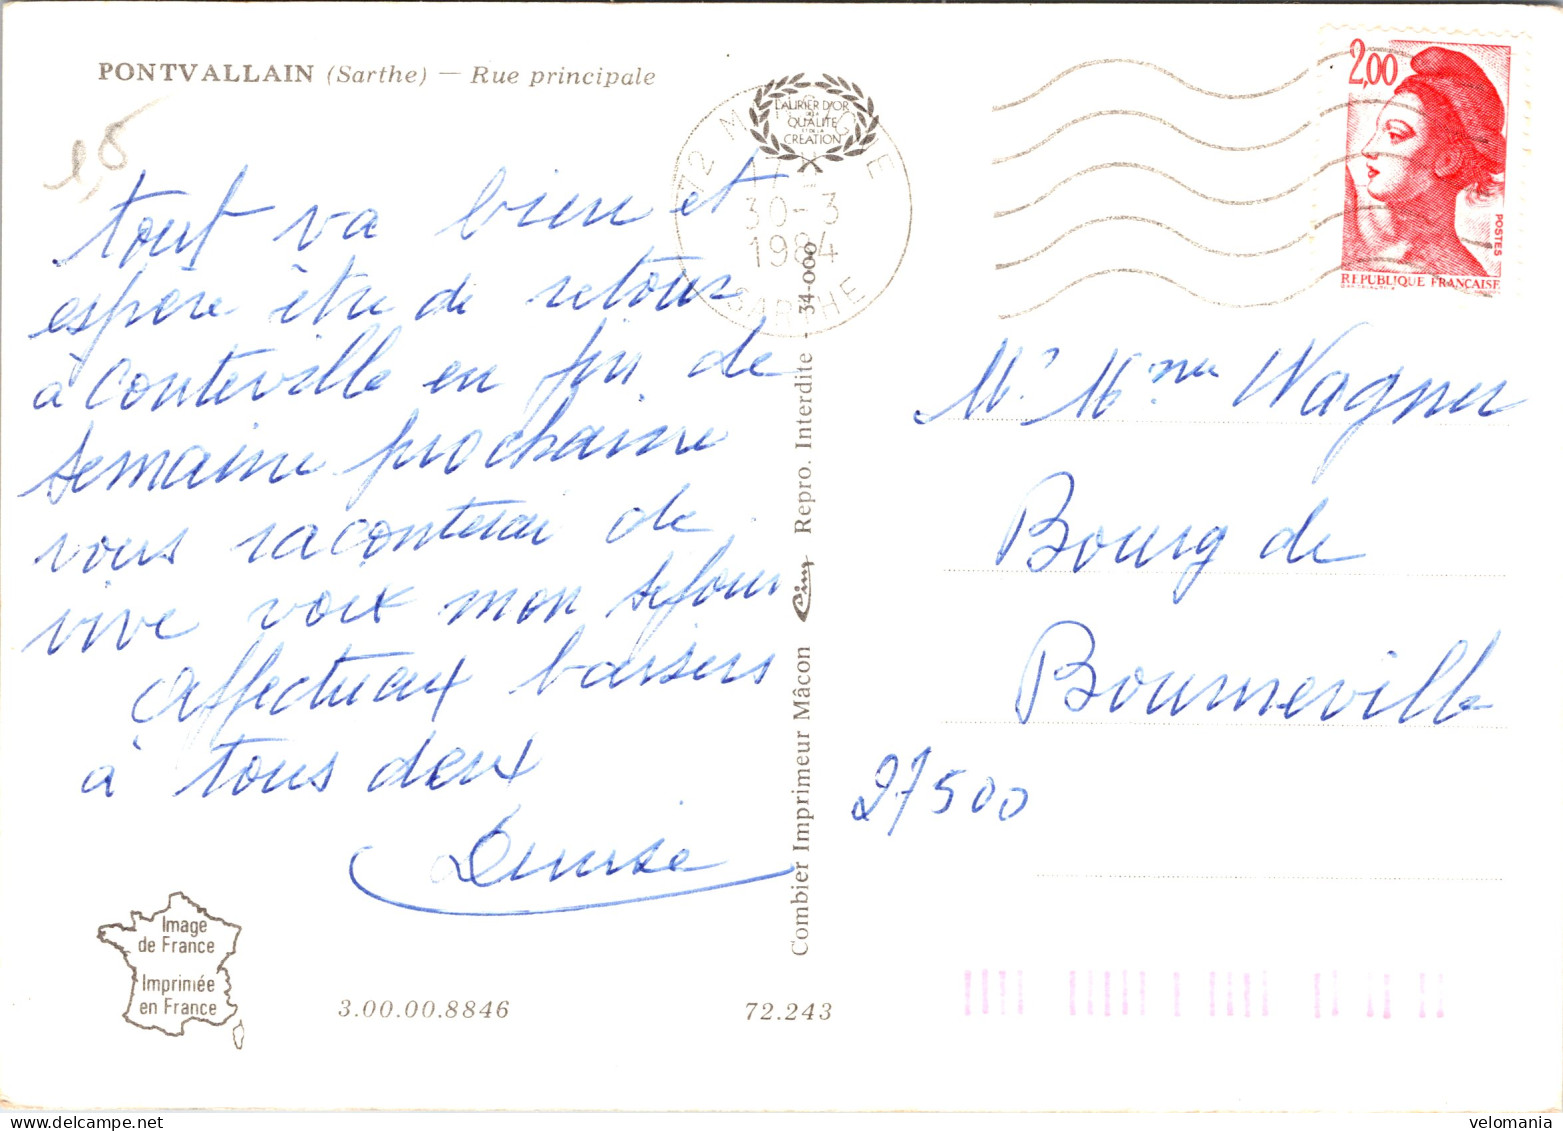 PONTVALLAIN (Sarthe) — Rue principale
1,5
tout va bien et
espère être de retour
à Conteville en fin de
semaine prochaine
vous raconterai de
vive voix mon séjour
affectueux baisers
à tous deux
Denise
Image
de France
Imprimée
en France
3.00.00.8846
72.243
Combier Imprimeur Mâcon Cim Repro. Interdite - 34-000
LAURIER D'OR
DE LA
QUALITÉ
ET DE LA
CRÉATION
72
17
30-3
1984
SARTHE
2,00
POSTES
REPUBLIQUE FRANÇAISE
Mr Mme Wagner
Bourg de
Bourneville
27500
velomania